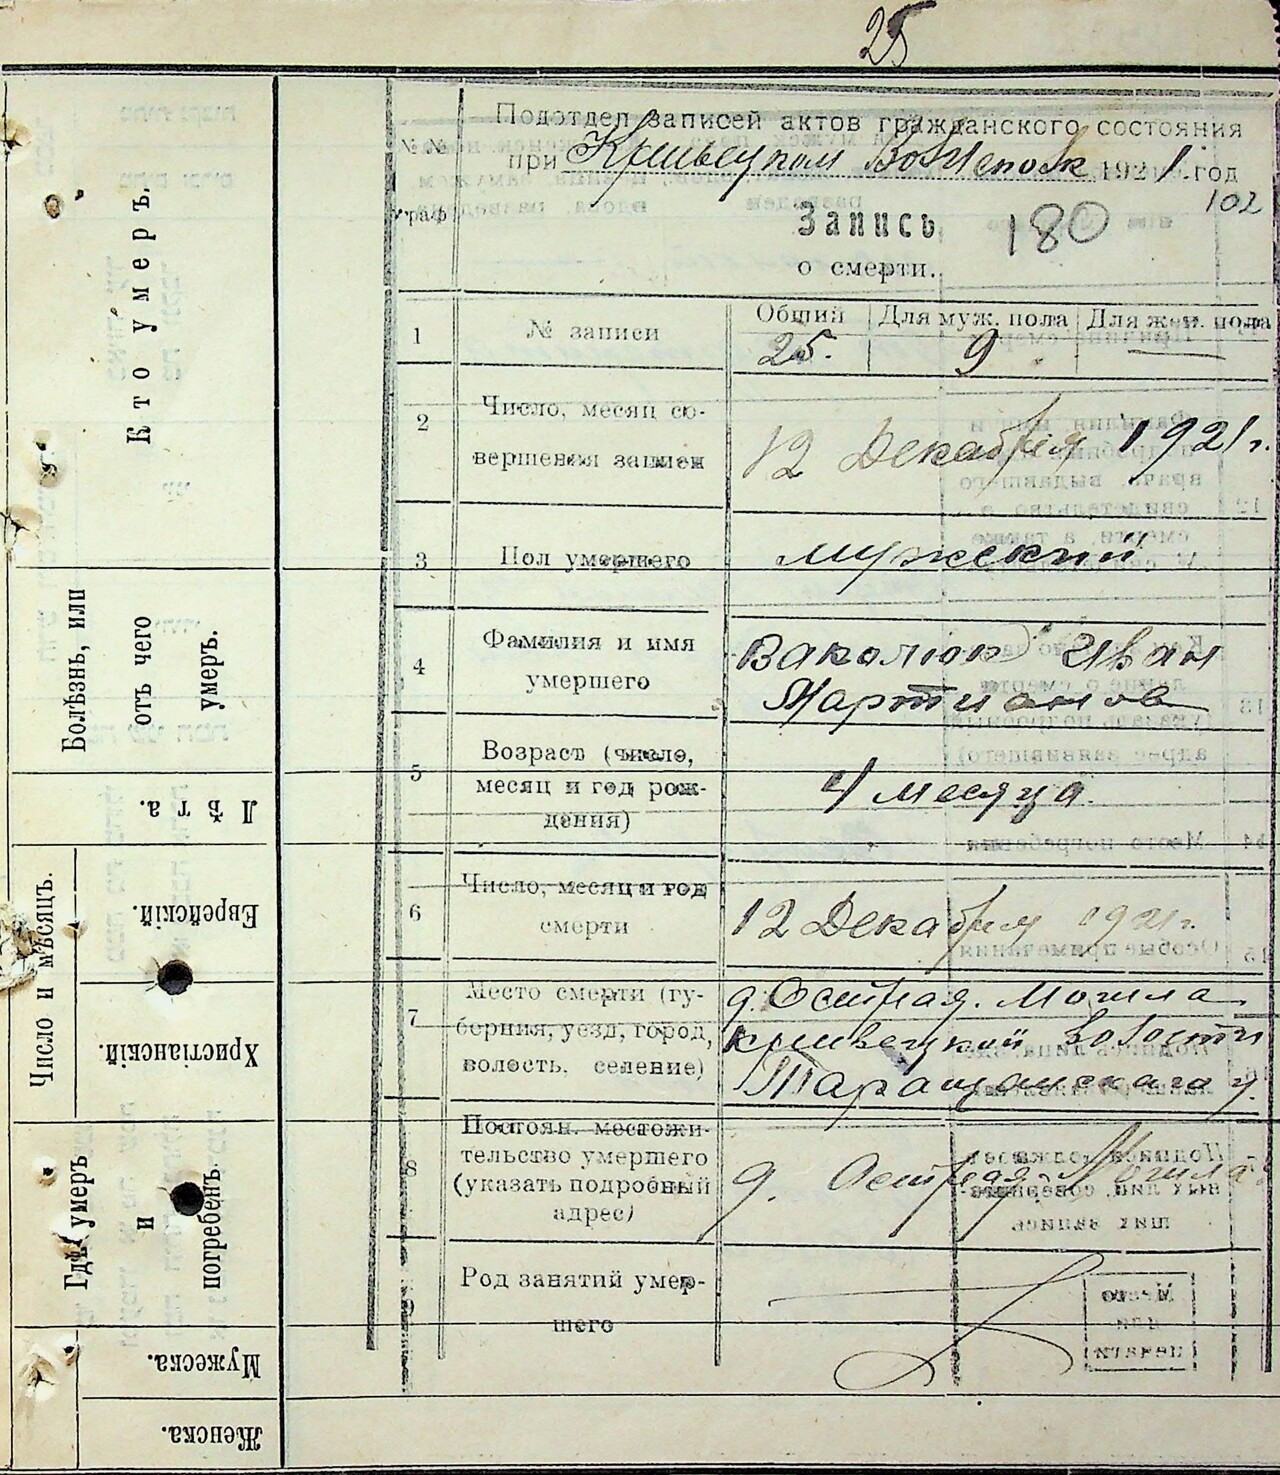 25
Подотдел записей актов гражданского состояния
№ №
граф
при Кривецком Волисполк 1921 год
102
Запись
180
о смерти.
1
№ записи
Общий
Для муж. пола
Для жен. пола
25.
9
2
Число, месяц со-
вершения записи
12 Декабря 1921 г.
3
Пол умершего
мужеский
4
Фамилия и имя
умершего
Ваколюк Иван
Мартианов
5
Возраст (число,
месяц и год рож-
дения)
4 месяца.
6
Число, месяц и год
смерти
12 Декабря 1921 г.
7
Место смерти (гу-
берния, уезд, город,
волость, селение)
д. Острая. Могила
Кривецкой Волости
Таращанскаго у.
8
Постоян. местожи-
тельство умершего
(указать подробный
адрес)
д. Острая Могила
9
Род занятий умер-
шего
Кто умеръ.
Болѣзнь, или
отъ чего
умеръ.
Лѣта.
Число и мѣсяцъ.
Еврейскій.
Христіанскій.
Гдѣ умеръ
и
погребенъ
Мужеска.
Женска.